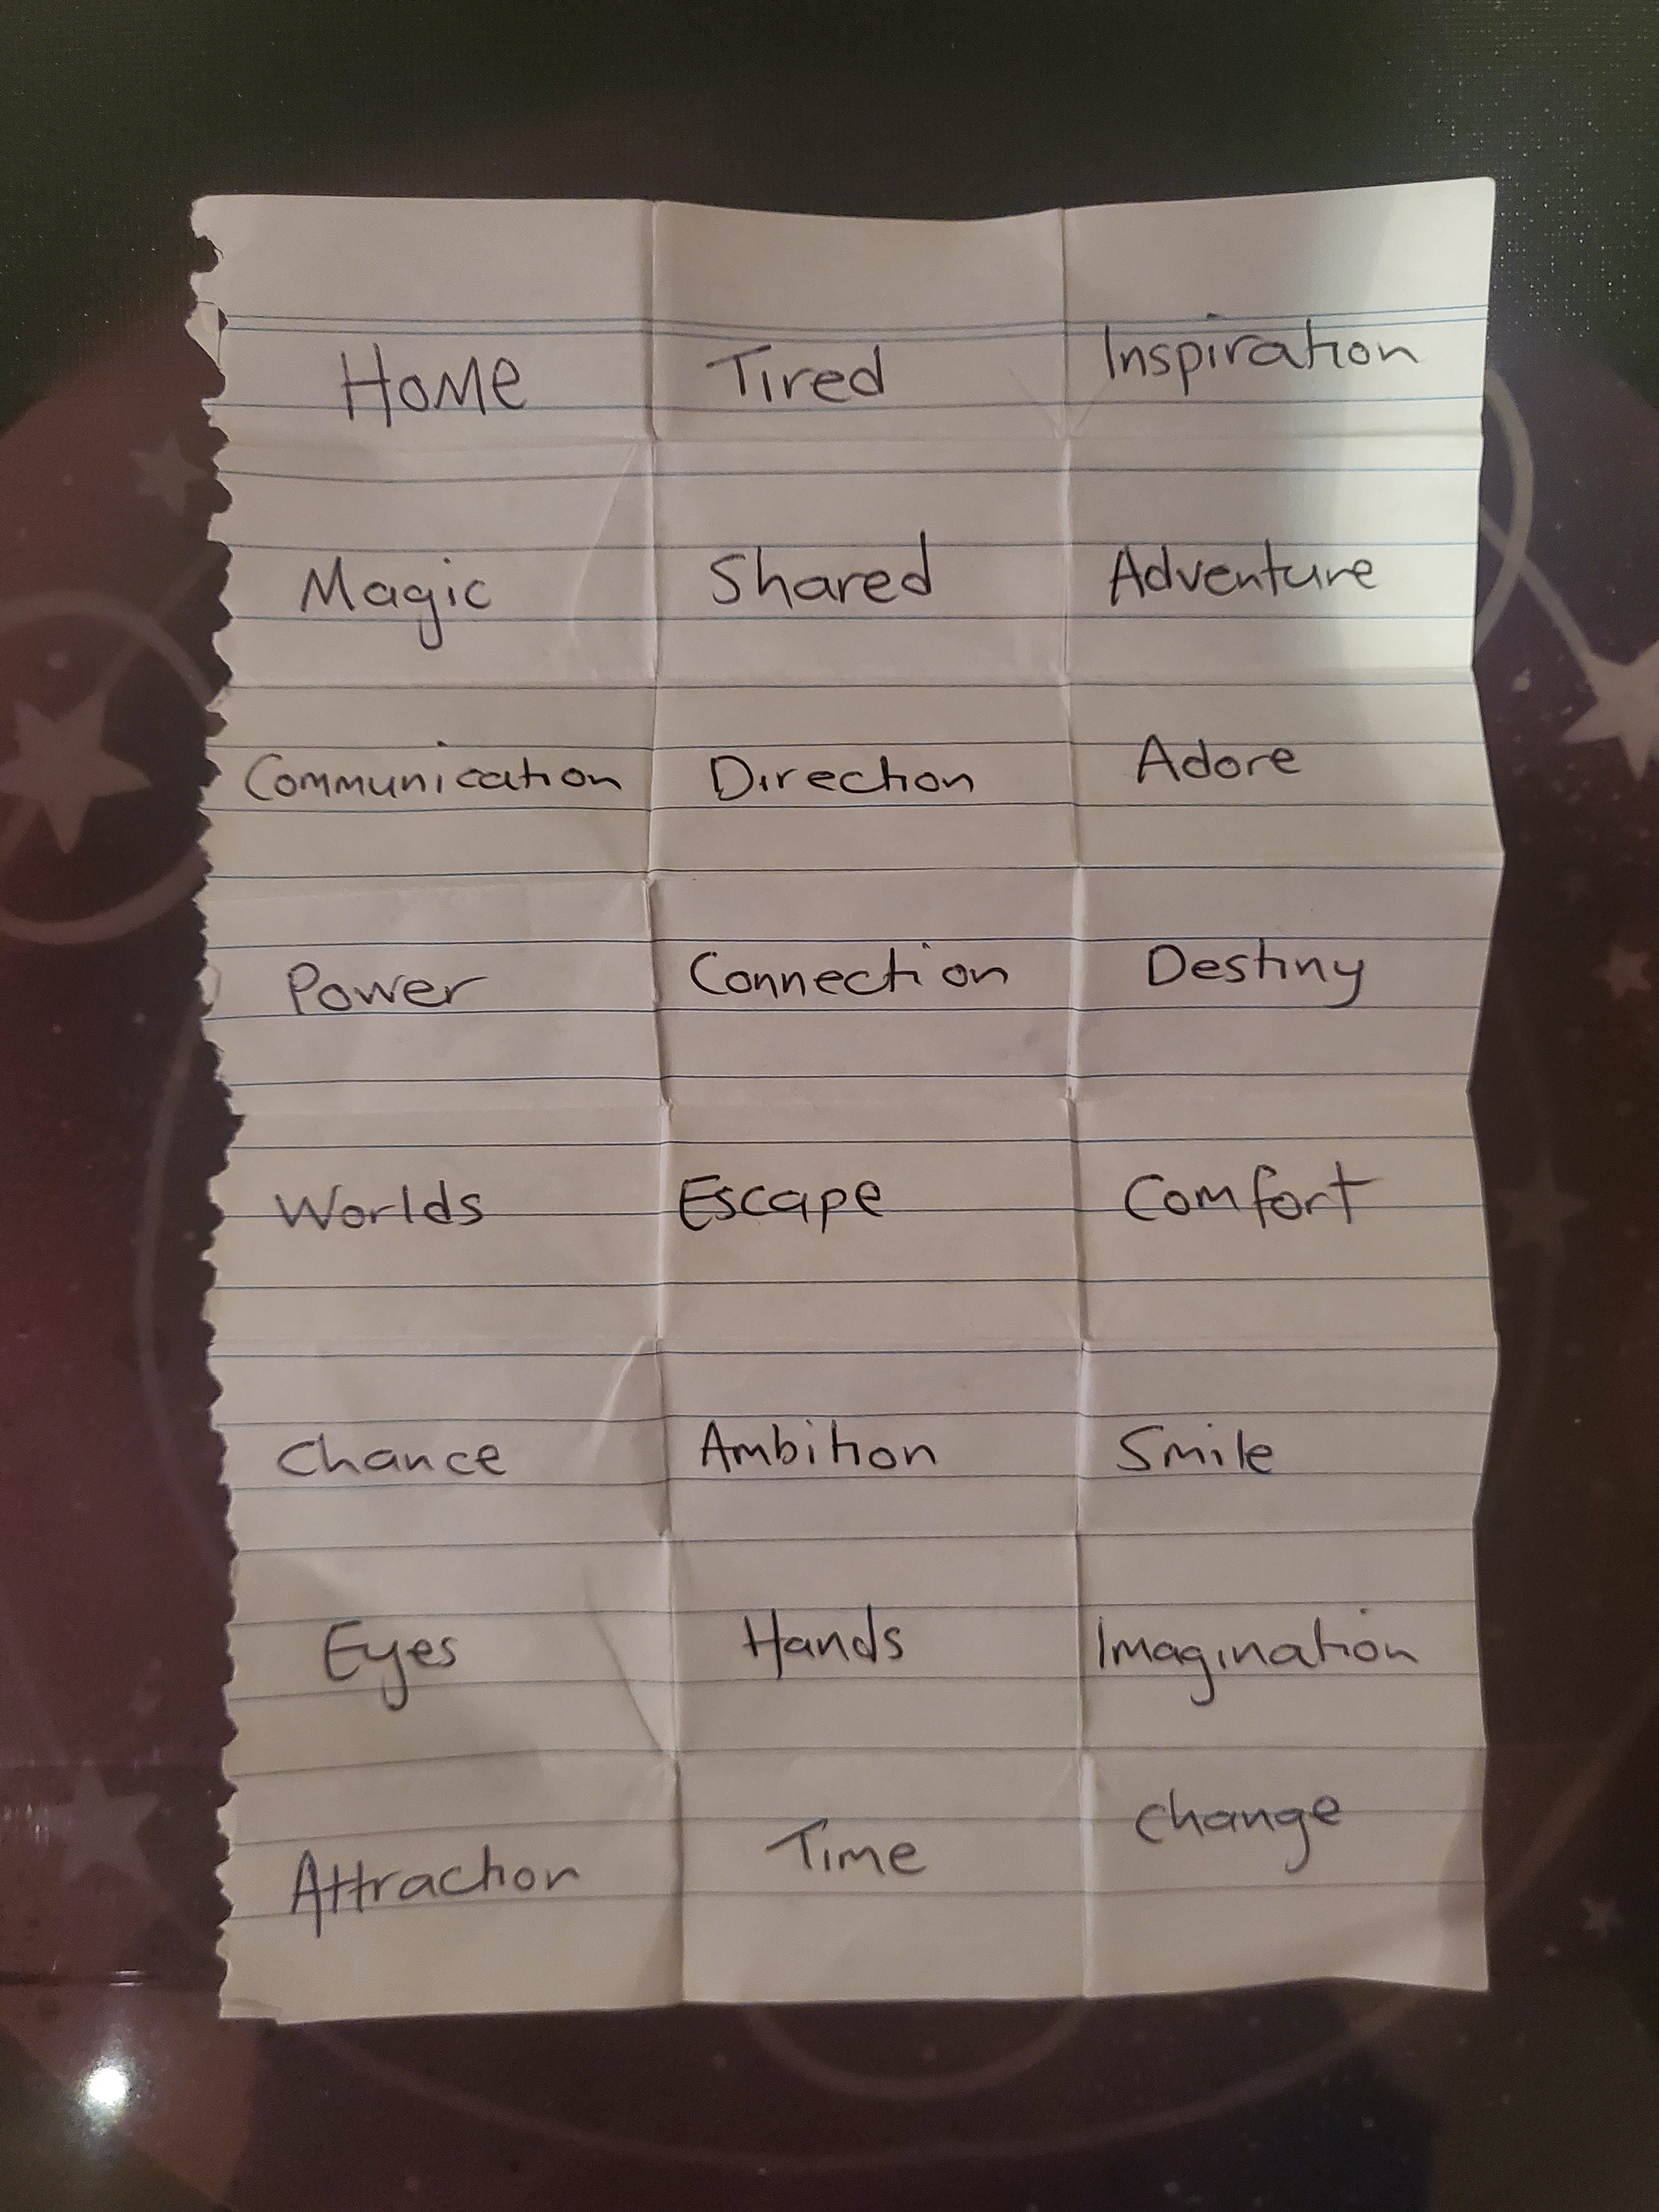 Home Tired Inspiration
Magic Shared Adventure
Communication Direction Adore
Power Connection Destiny
Worlds Escape Comfort
Chance Ambition Smile
Eyes Hands Imagination
Attraction Time Change